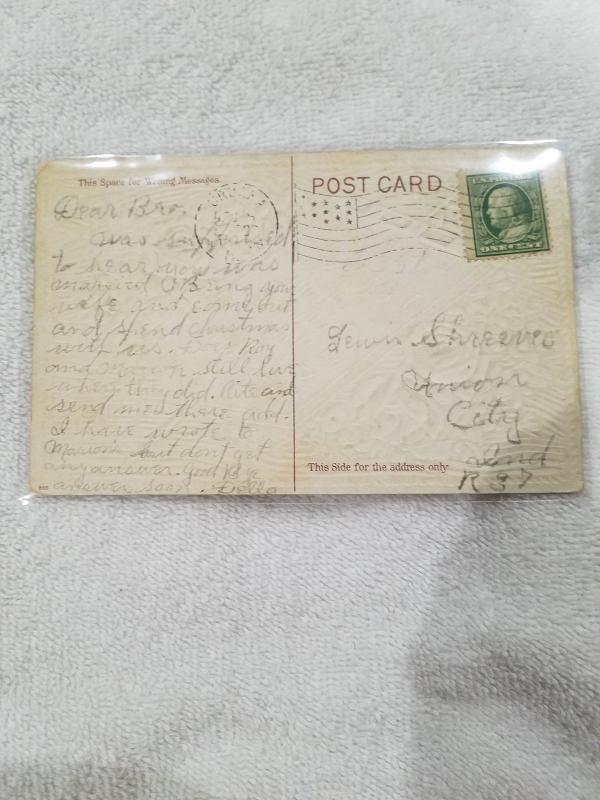 This Space for Writing Messages.
POST CARD
ONE CENT
Dear Bro.
was surprised
to hear you was
married Bring your
wife and come out
and spend Christmas
with us. Does Roy
and Marion still live
where they did. Rite and
send me there add.
I have wrote to
Marion but don't get
any answer. Good Bye
answer soon. Della
Lewis Shreeves
Union
City
Ind
This Side for the address only